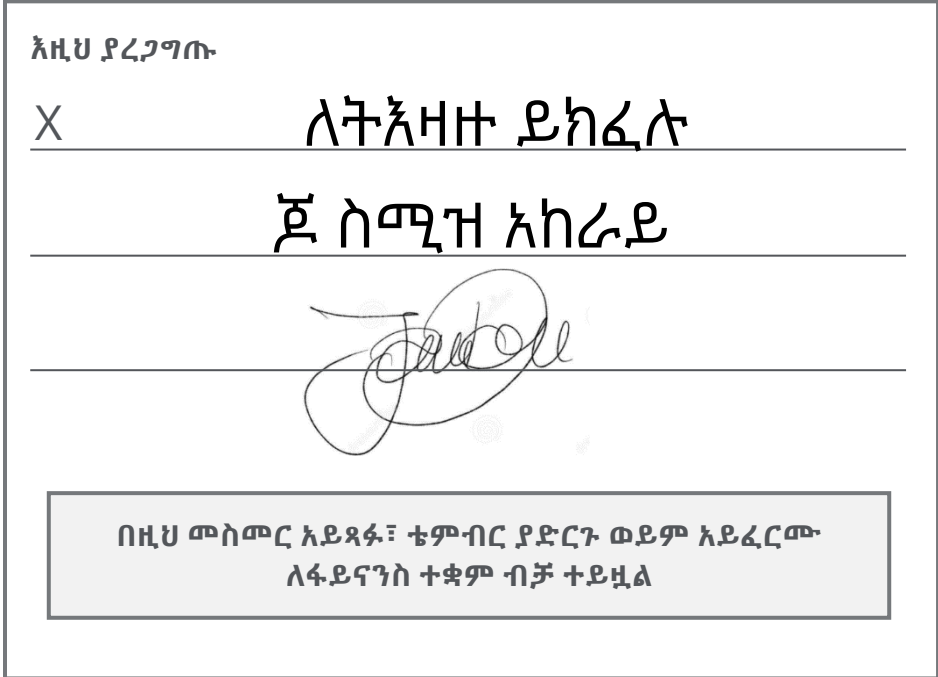 እዚህ ያረጋግጡ
X ለትእዛዙ ይክፈሉ
ጆ ስሚዝ አከራይ
በዚህ መስመር አይጻፉ፣ ቴምብር ያድርጉ ወይም አይፈርሙ
ለፋይናንስ ተቋም ብቻ ተይዟል